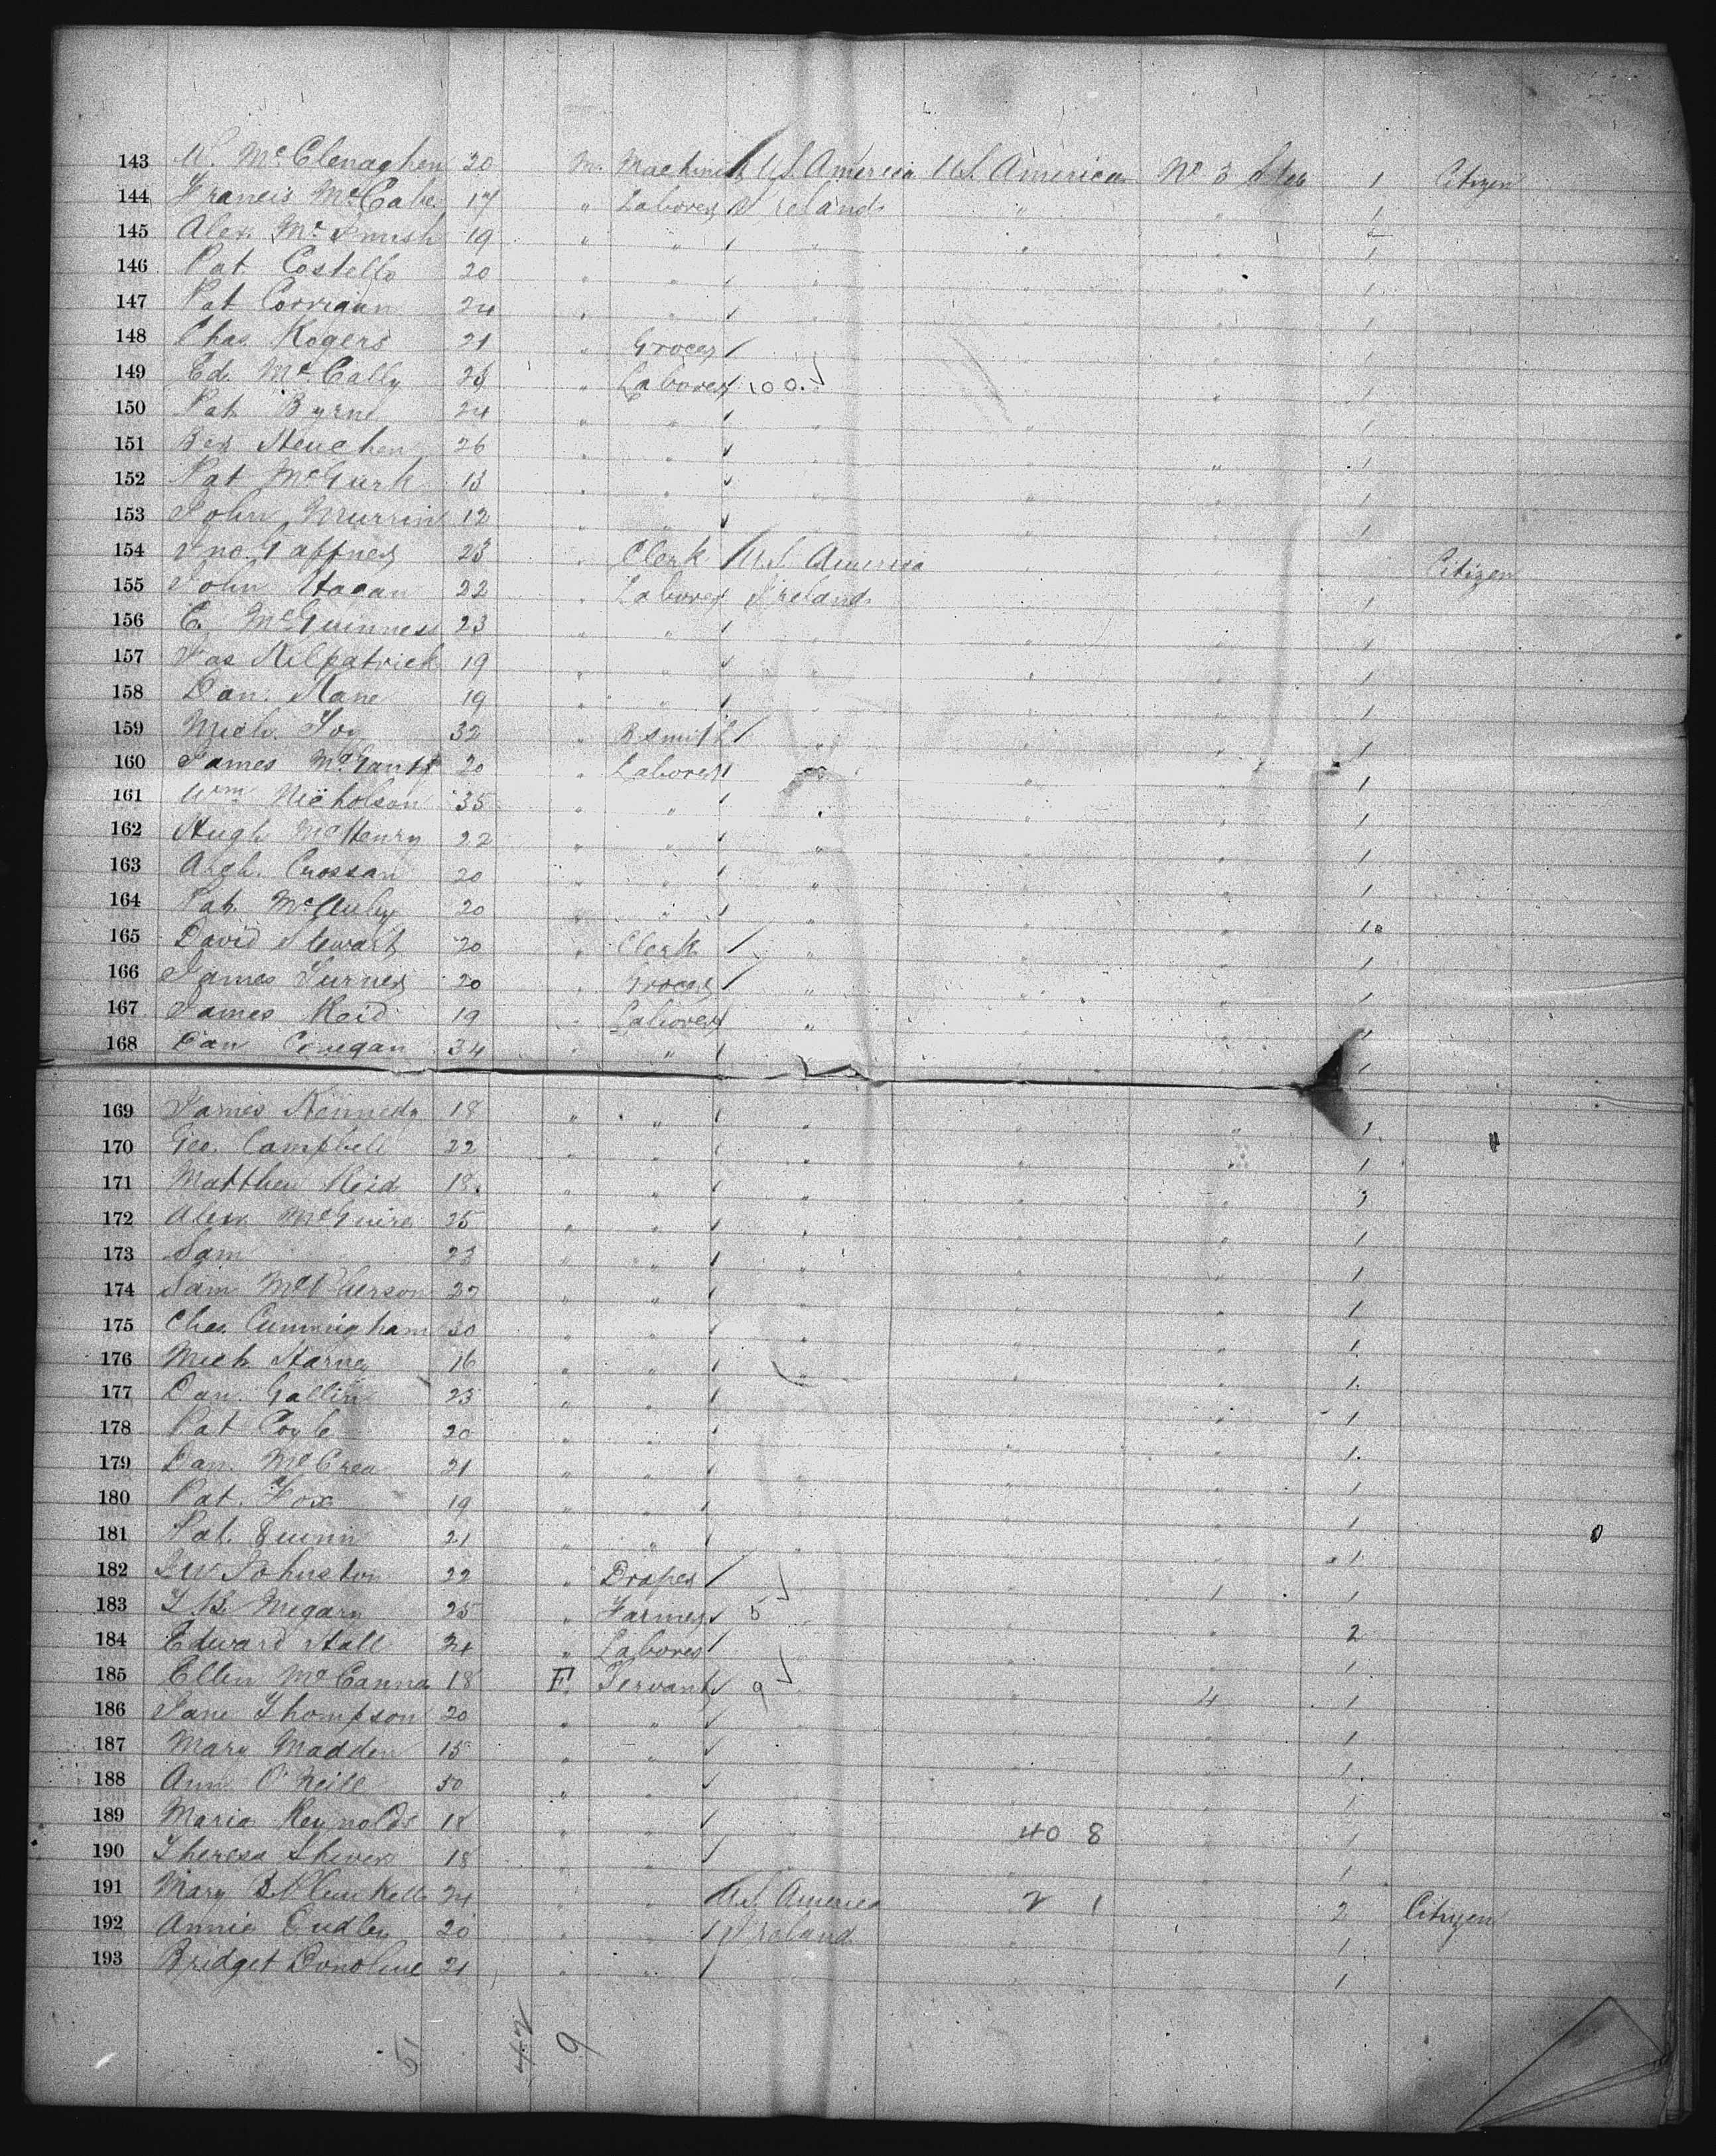 143 W. McClenaghen 20 M. Machinist U.S. America U.S. America No 3 Stg 1 Citizen
144 Francis McCabe 17 " Laborer Ireland " " 1
145 Alex. 19 " " " " " 1
146 Pat Costello 20 " " " " " 1
147 Pat Corrigan 24 " " " " " 1
148 Chas Rogers 21 " Grocer " " 1
149 Ed. McCally " Laborer 100 " " 1
150 Pat Byrne 24 " " " " " 1
151 26 " " " " " 1
152 Pat McGurk 13 " " " " " 1
153 John Murrin 12 " " " " " 1
154 Jno. Gaffney 23 " Clerk U.S. America " " Citizen
155 John Hagan 22 " Laborer Ireland " " 1
156 C. McGuinness 23 " " " " " 1
157 Jas Kilpatrick 19 " " " " " 1
158 Dan. Kane 19 " " " " " 1
159 Mich. Fox 32 " B.smith " " " 1
160 James 20 " Laborer " " " 1
161 Wm Nicholson 35 " " " " " 1
162 Hugh McHenry 22 " " " " " 1
163 Arch. Crossan 20 " " " " " 1
164 Pat. McAuley 20 " " " " " 1
165 David Stewart 20 " Clerk " " " 1
166 James Turner 20 " Grocer " " " 1
167 James Reid 19 " Laborer " " " 1
168 Dan 34 " " " " 1
169 James Kennedy 18 " " " " " 1
170 Geo. Campbell 22 " " " " " 1
171 Matthew Reid 18 " " " " " 1
172 Alex McGuire 25 " " " " " 1
173 Sam 23 " " " " " 1
174 Sam McPherson " " " " " 1
175 Chas. Cunningham 30 " " " " " 1
176 Mich. 16 " " " " " 1
177 Dan. Gallin 25 " " " " " 1
178 Pat Coyle 20 " " " " " 1
179 Dan. McCrea 21 " " " " " 1
180 Pat. Fox 19 " " " " " 1
181 Pat. Quinn 21 " " " " " 1
182 J W Johnston 22 " Draper " 1 1
183 J. B. Megarry 25 " Farmer 5 " " " 2
184 Edward Hall 24 " Laborer " " 1
185 Ellen McCanna 18 F. Servant 9 " " 4 1
186 Jane Thompson 20 " " " " " 1
187 Mary Madden 15 " " " " " 1
188 Ann O'Neill 50 " " " " " 1
189 Maria Reynolds 18 " " " 40 8 " 1
190 Theresa 18 " " " " " 1
191 Mary 24 " " U.S. America 2 1 2 Citizen
192 Annie 20 " " Ireland " " 1
193 Bridget Donohue 21 " " " 1
51 42 9